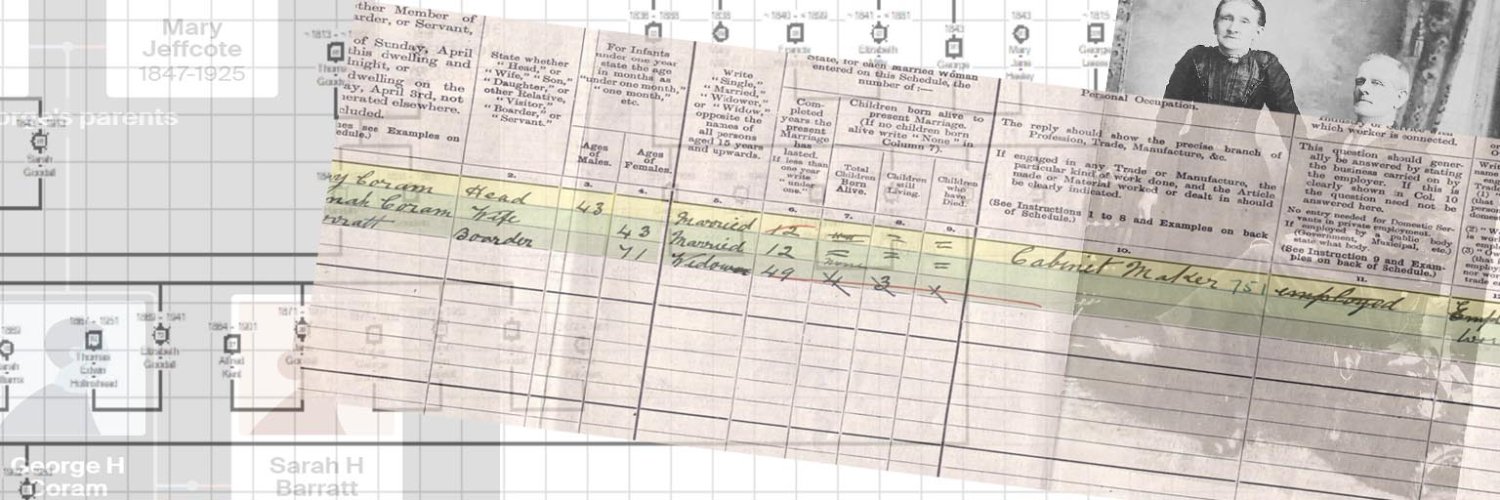 Mary
Jeffcote
1847-1925
George's parents
ther Member of
arder, or Servant,
of Sunday, April
this dwelling and
night, or
dwelling on the
ay, April 3rd, not
erated elsewhere.
cluded.
see Examples on
edule.)
State whether
"Head," or
"Wife," "Son,"
"Daughter," or
other Relative,
"Visitor,"
"Boarder," or
"Servant."
For Infants
under one year
state the age
in months as
"under one month,"
"one month,"
etc.
Ages
of
Males.
Ages
of
Females.
Write
"Single,"
"Married,"
"Widower,"
or "Widow,"
opposite the
names of
all persons
aged 15 years
and upwards.
State, for each married woman
entered on this Schedule, the
number of :—
Com-
pleted
years the
present
Marriage
has
lasted.
If less than
one year
write
"under
one."
Children born alive to
present Marriage.
(If no children born
alive write "None" in
Column 7).
Total
Children
Born
Alive.
Children
still
Living.
Children
who
have
Died.
Personal Occupation.
The reply should show the precise branch of
Profession, Trade, Manufacture, &c.
If engaged in any Trade or Manufacture, the
particular kind of work done, and the Article
made or Material worked or dealt in should
be clearly indicated.
(See Instructions 1 to 8 and Examples on back
of Schedule.)
which worker is connected.
This question should gener-
ally be answered by stating
the business carried on by
the employer. If this is
clearly shown in Col. 10
the question need not be
answered here.
No entry needed for Domestic Ser-
vants in private employment.
If employed by a public body
(Government, Municipal, etc.)
state what body.
(See Instruction 9 and Exam-
ples on back of Schedule.)
2. 3. 4. 5. 6. 7. 8. 9. 10. 11.
Coram Head 43 Married 12 Cabinet Maker 751 employed
Coram Wife 43 Married 12
Boarder 71 Widow 49 4 3 1
1838 - 1888
1838
~1840 - ~1899
Francis
~1841 - 1881
Elizabeth
1843
George
1843
Mary
Jane
~1815
George
~1813 -
Sarah
Goodall
1887 - 1951
Thomas
Edwin
1889 - 1941
Elizabeth
Goodall
1884 - 1901
Alfred
Kent
1871 -
George H
Coram
Sarah H
Barratt